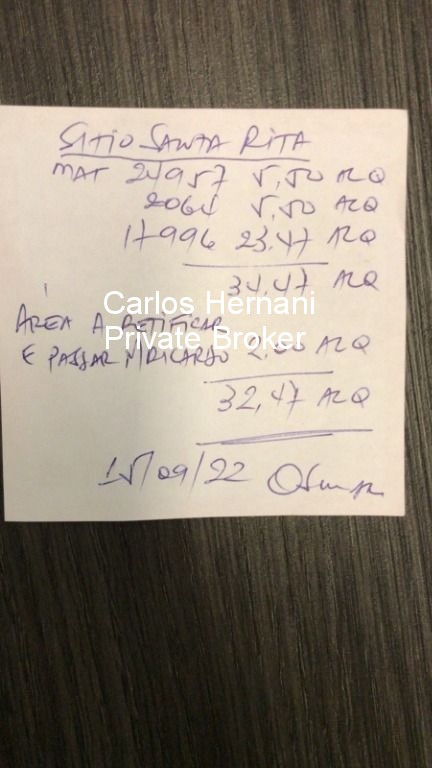 SITIO SANTA RITA
MAT 24957 5,50 ALQ
2064 5,50 ALQ
17996 23,47 ALQ
34,47 ALQ
Carlos Hernani
ÁREA A RETIFICAR
Private Broker
E PASSAR P/ RICARDO 2,00 ALQ
32,47 ALQ
15/09/22